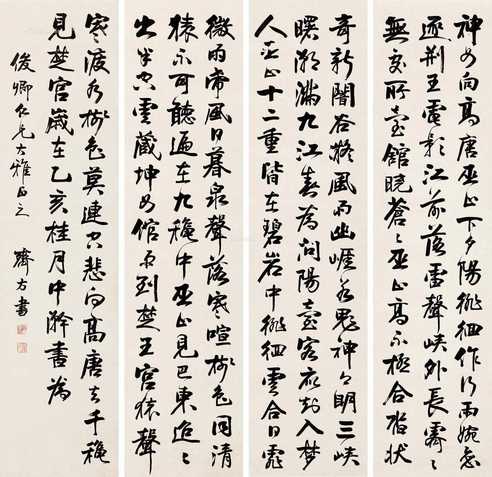 神女向高唐巫山下夕陽徘徊作行雨婉
逐荆王電影江前落雷聲峽外長霽
無處所臺館曉蒼々巫山高不極合沓狀
奇新闇谷疑風雨幽崖若鬼神月明三峽
曙潮滿九江春為問陽臺客應知入夢
人巫山十二重皆在碧岩中徘徊雲合日霏
微雨帶風日暮泉聲落寒喧樹色同清
猿不可聽遍在九龝中巫山見巴東迢々
出半空雲藏神女館雨到楚王宮猿聲
寒渡水樹色莫連空悲向高唐去千龝
見楚宮歲在乙亥桂月中澣書為
俊卿仁兄大雅正之
方書